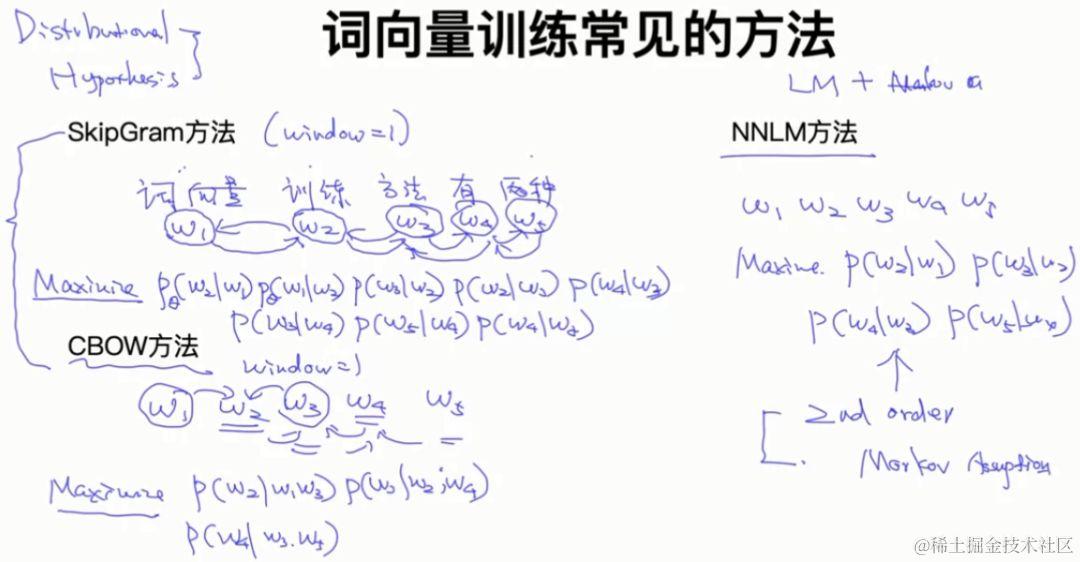 词向量训练常见的方法
Distributional
Hypothesis
LM +
SkipGram方法 (window=1)
词向量 训练 方法 有 两种
w1 w2 w3 w4 w5
Maximize pθ(w2|w1) pθ(w1|w2) p(w3|w2) p(w2|w3) p(w4|w3)
p(w3|w4) p(w5|w4) p(w4|w5)
CBOW方法
window=1
w1 w2 w3 w4 w5
Maximize p(w2|w1w3) p(w3|w2,w4)
p(w4|w3.w5)
NNLM方法
w1 w2 w3 w4 w5
Maxime. p(w2|w1) p(w3|w2)
p(w4|w3) p(w5|w4)
2nd order
Markov Assuption
@稀土掘金技术社区